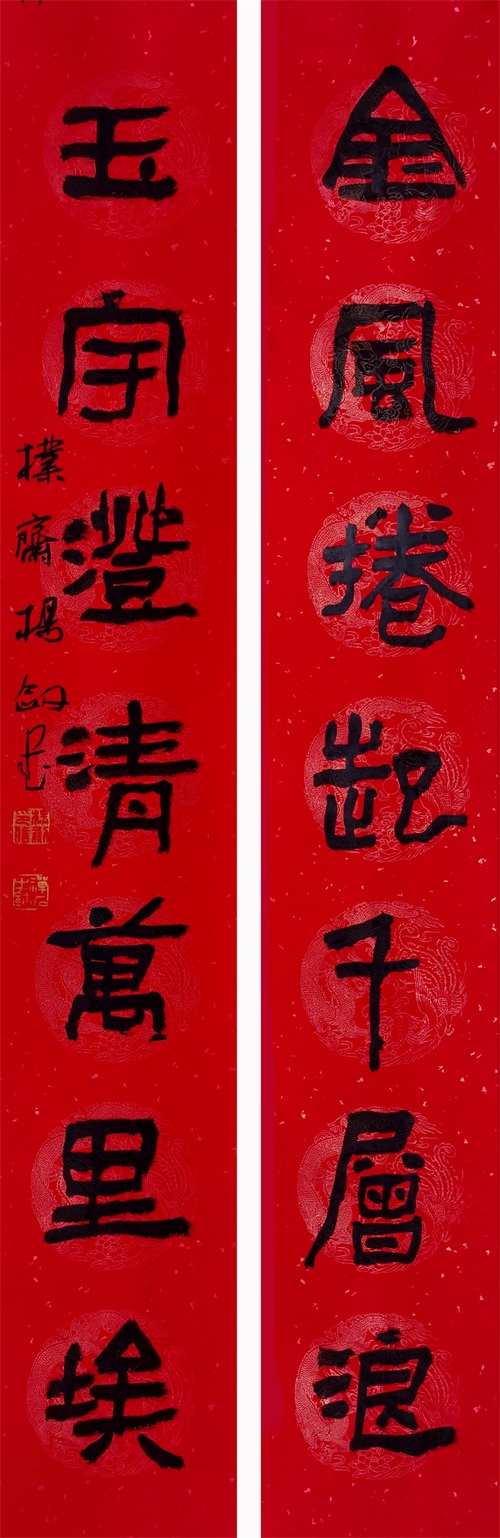 金風捲起千層浪
玉宇澄清萬里埃
樸齋楊劍書